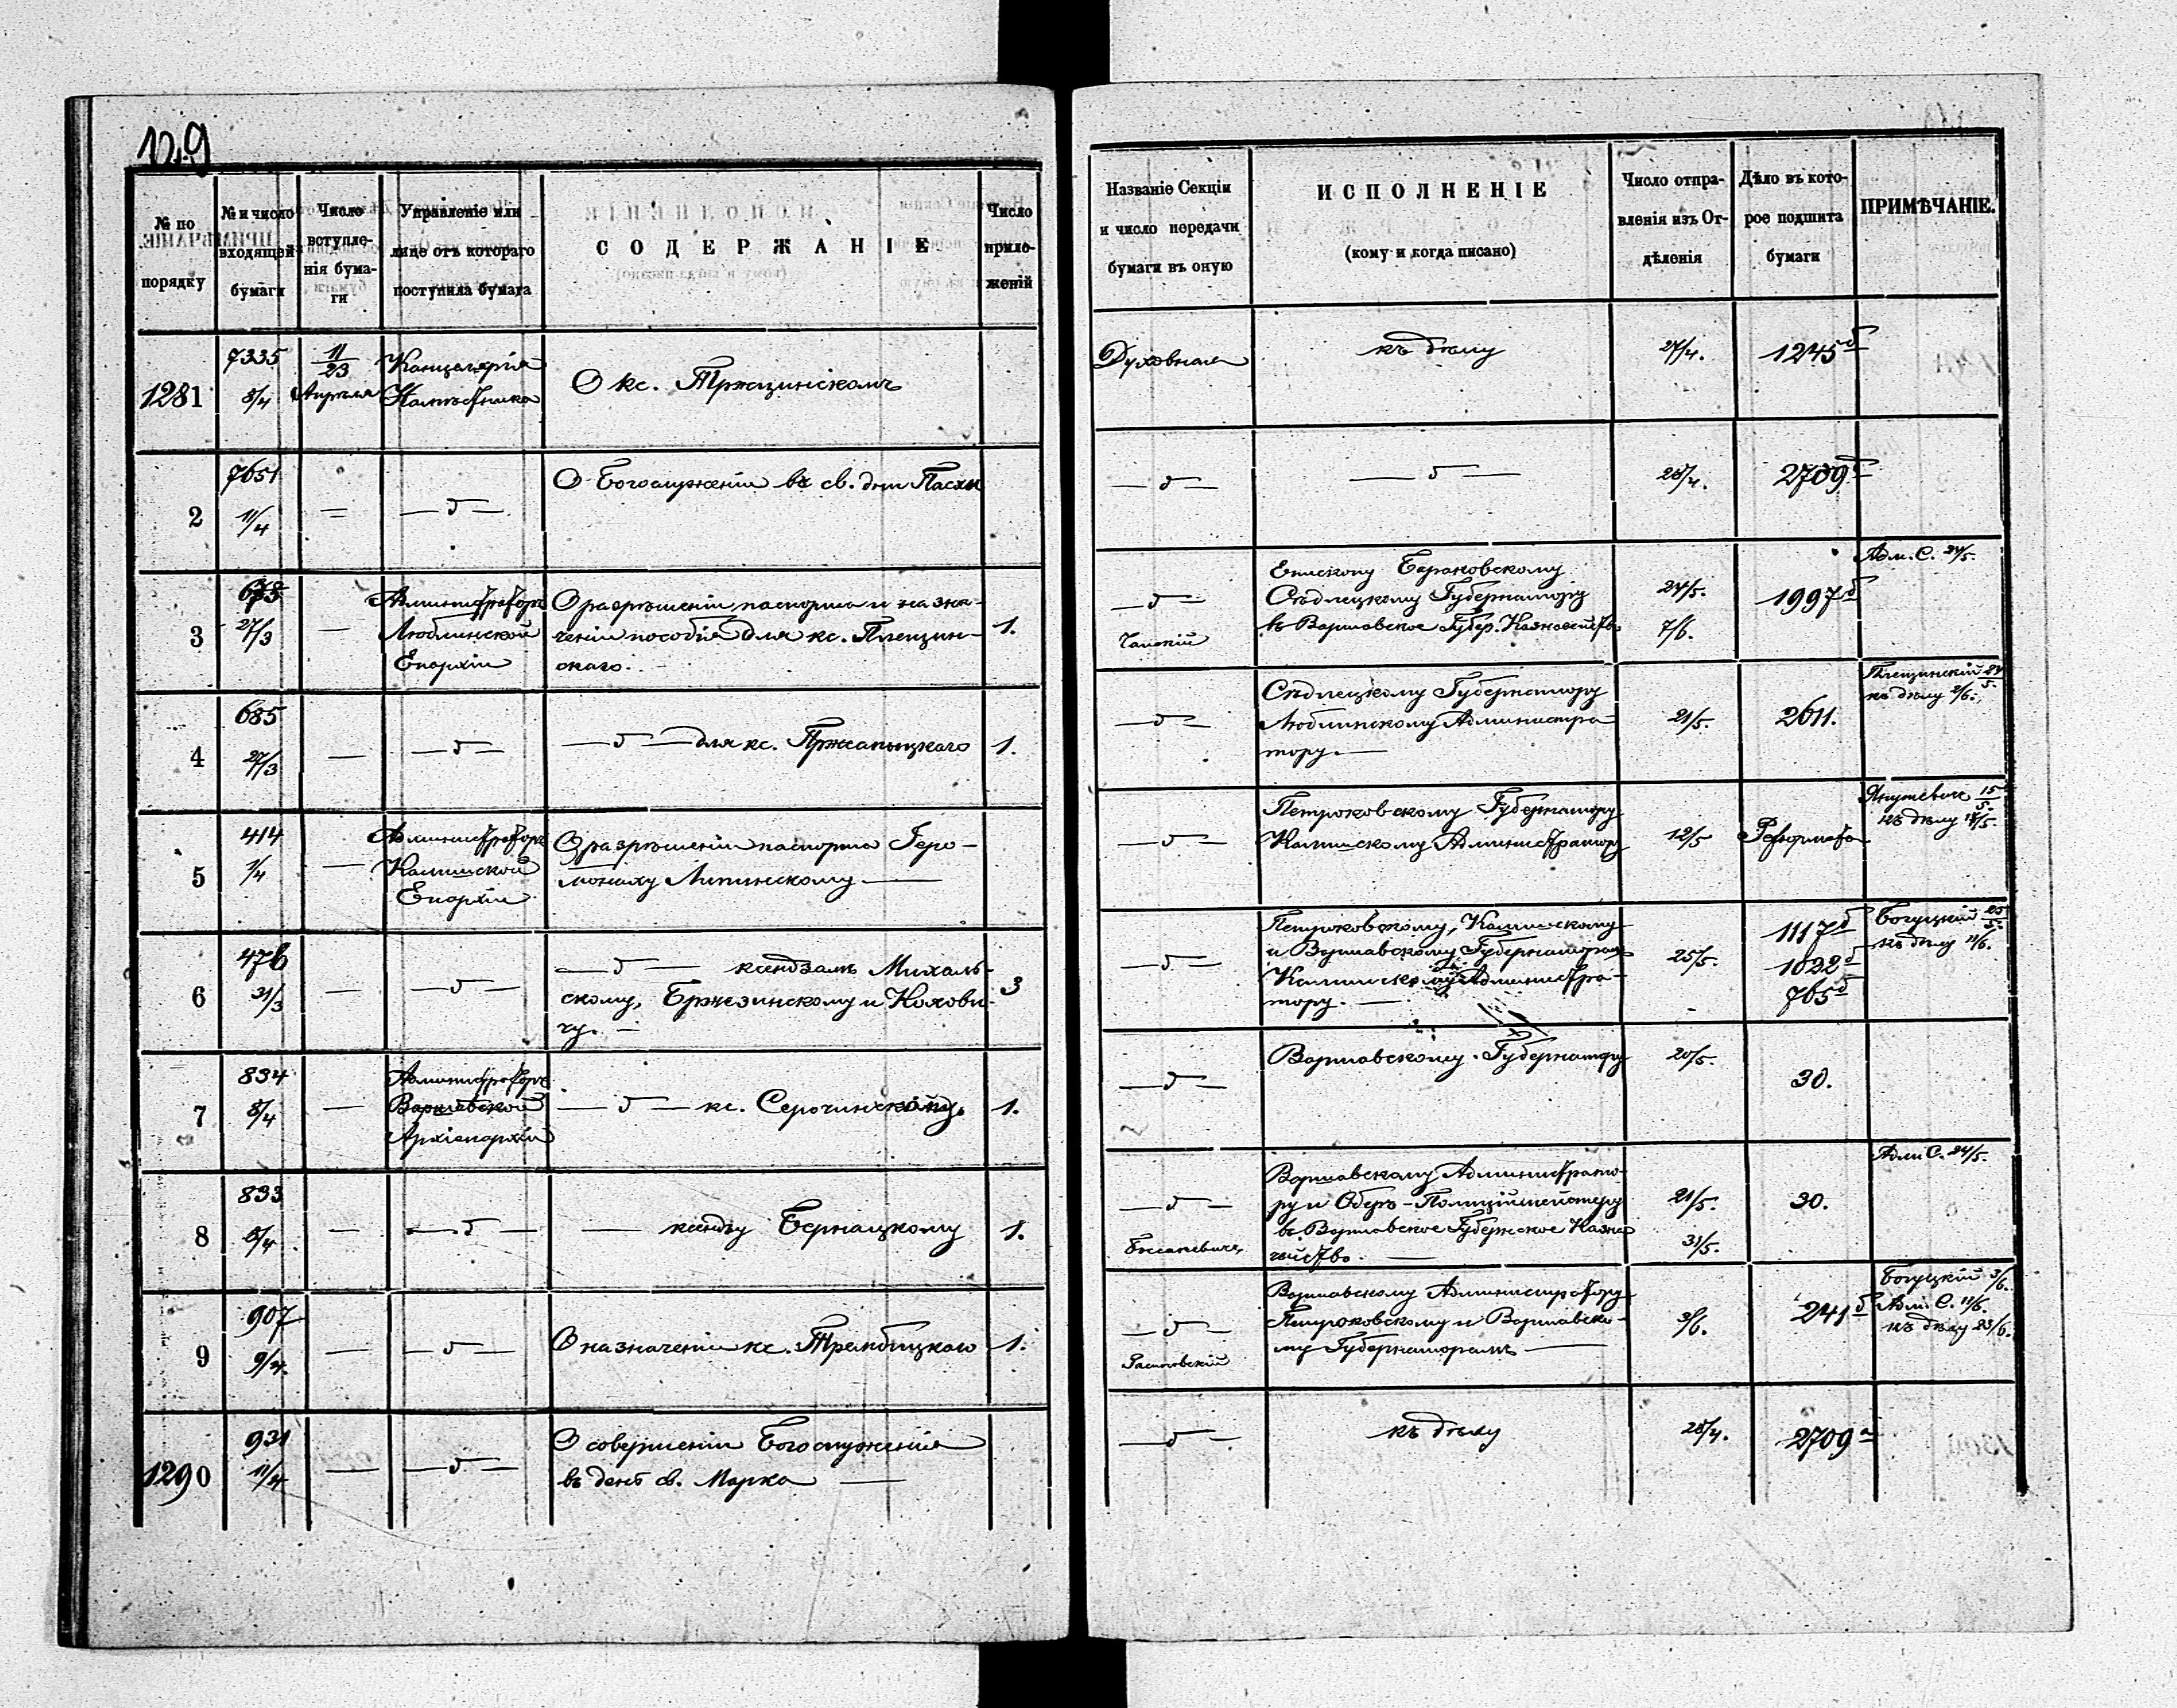 129
№ по порядку
№ и число входящей бумаги
Число вступле-
нія бума-
ги
Управленіе или
лице отъ котораго
поступила бумага
СОДЕРЖАНІЕ
Число
прило-
женій
Названіе Секціи
и число передачи
бумаги въ оную
ИСПОЛНЕНІЕ
(кому и когда писано)
Число отпра-
вленія изъ От-
дѣленія
Дѣло въ кото-
рое подшита
бумаги
ПРИМѢЧАНІЕ.
1281
7335
8/4
11/23
Апрѣля
Канцелярія
Намѣстника
О кс. Тржцинскомъ
Духовная
къ дѣлу
27/4.
1245 б
2
7651
11/4
=
— д —
О Богослуженіи въ св. дни Пасхи
— д —
— д —
28/4.
2709 б
3
27/3
—
Администраторъ
Люблинской
Епархіи
О разрѣшеніи паспорта и назна-
ченіи пособія для кс. Плещин-
скаго.
1.
— д —
Епископу Барановскому
Сѣдлецкому Губернатору
въ Варшавское Губер. Казначейство
24/5.
7/6.
1997 б
Адм. С. 24/5.
4
685
27/3
—
— д —
— д — для кс. Пржесмыцкаго
1.
— д —
Сѣдлецкому Губернатору
Люблинскому Администра-
тору. —
21/5.
2611.
Плещинскій 24/5.
къ дѣлу 2/6.
5
414
1/4
—
Администраторъ
Калишской
Епархіи
О разрѣшеніи паспорта Іеро-
монаху Липинскому —
— д —
Петроковскому Губернатору
Калишскому Администратору
12/5
Реформато
15/5.
къ дѣлу 18/5.
6
476
31/3
—
— д —
— д — ксендзамъ Михаль-
скому, Бржезинскому и Колови-
чу. —
3
— д —
Петроковскому, Калишскому
и Варшавскому Губернаторамъ
Калишскому Администра-
тору. —
25/5.
1117 б
1022 б
765 б
Богуцкій 25/5.
къ дѣлу 11/6.
7
834
8/4
—
Администраторъ
Варшавской
Архіепархіи
— д — кс. Серочинскому
1.
— д —
Варшавскому Губернатору
20/5.
30.
8
833
8/4
—
— д —
— ксендзу Бернацкому
1.
— д —
Варшавскому Администрато-
ру и Оберъ-Полиціймейстеру
въ Варшавское Губернское Казна
чейство. —
21/5.
31/5.
30.
Адм. С. 24/5.
9
907
9/4.
—
— д —
О назначеніи кс. Трембицкаго
1.
— д —
Варшавскому Администратору
Петроковскому и Варшавско-
му Губернаторамъ —
3/6.
241 б
Богуцкій 3/6.
Адм. С. 11/6.
къ дѣлу 23/6.
1290
931
11/4
—
— д —
О совершеніи Богослуженія
въ день св. Марка —
— д —
къ дѣлу
28/4.
2709 а